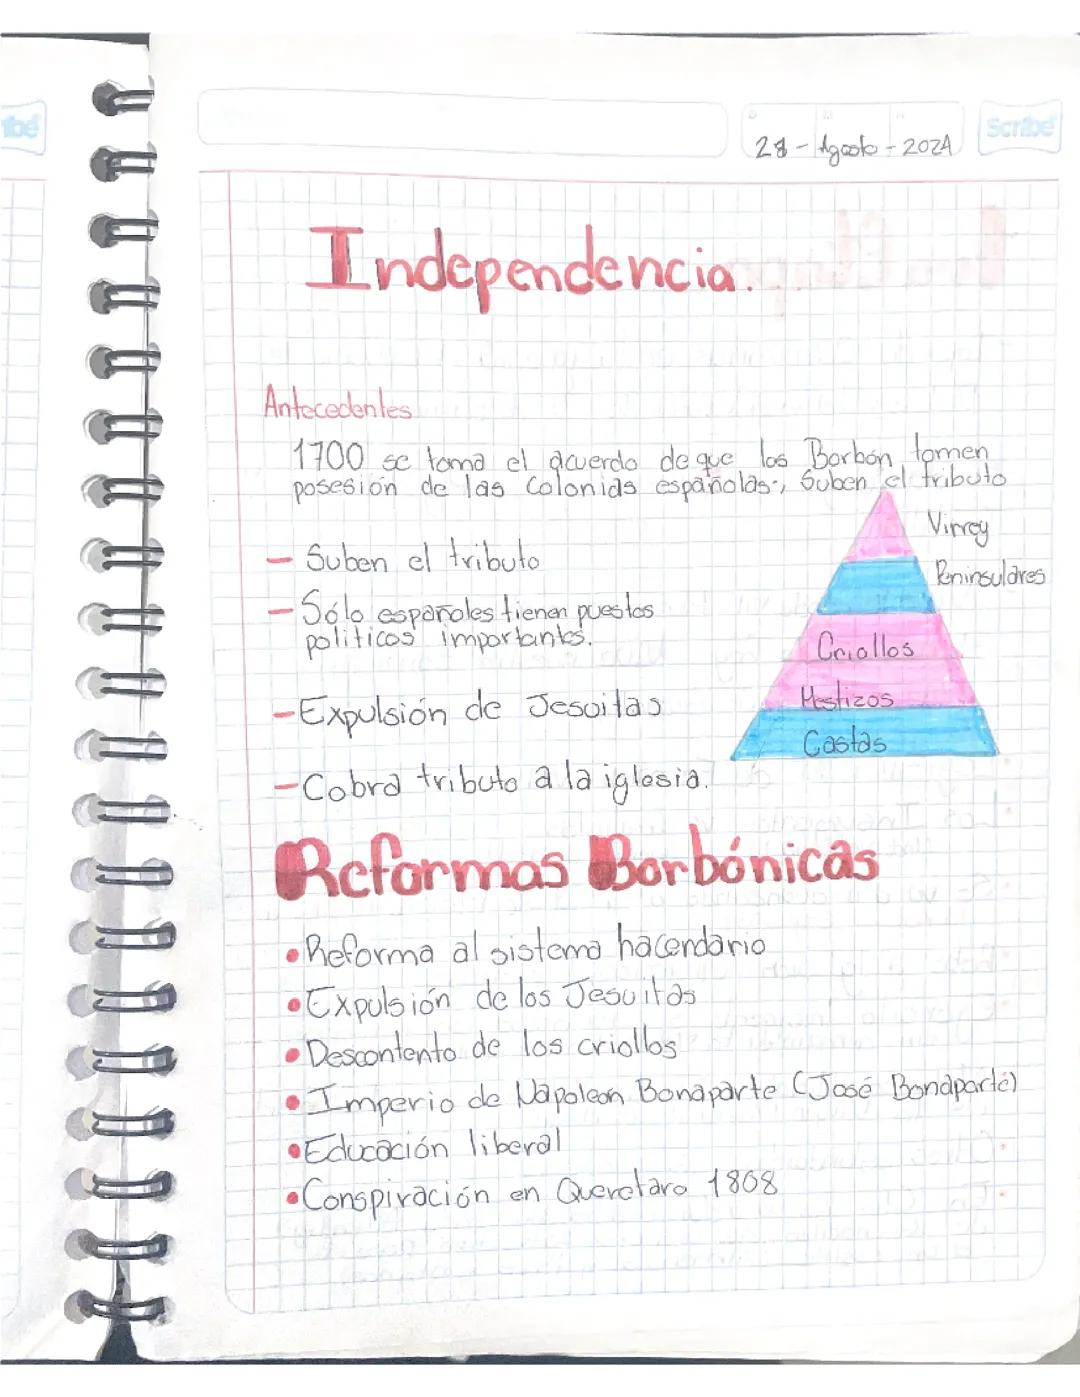 Scribe
28 - Agosto - 2024
Independencia.
Antecedentes
1700 se toma el acuerdo de que los Borbón tomen
posesión de las Colonias españolas, Suben el tributo
- Suben el tributo
- Sólo españoles tienen puestos
politicos importantes.
- Expulsión de Jesuitas
- Cobra tributo a la iglesia.
Virrey
Peninsulares
Criollos
Mestizos
Castas
Reformas Borbónicas
• Reforma al sistema hacendario
• Expulsión de los Jesuitas
• Descontento de los criollos
• Imperio de Napoleon Bonaparte (José Bonaparte)
• Educación liberal
• Conspiración en Queretaro 1808